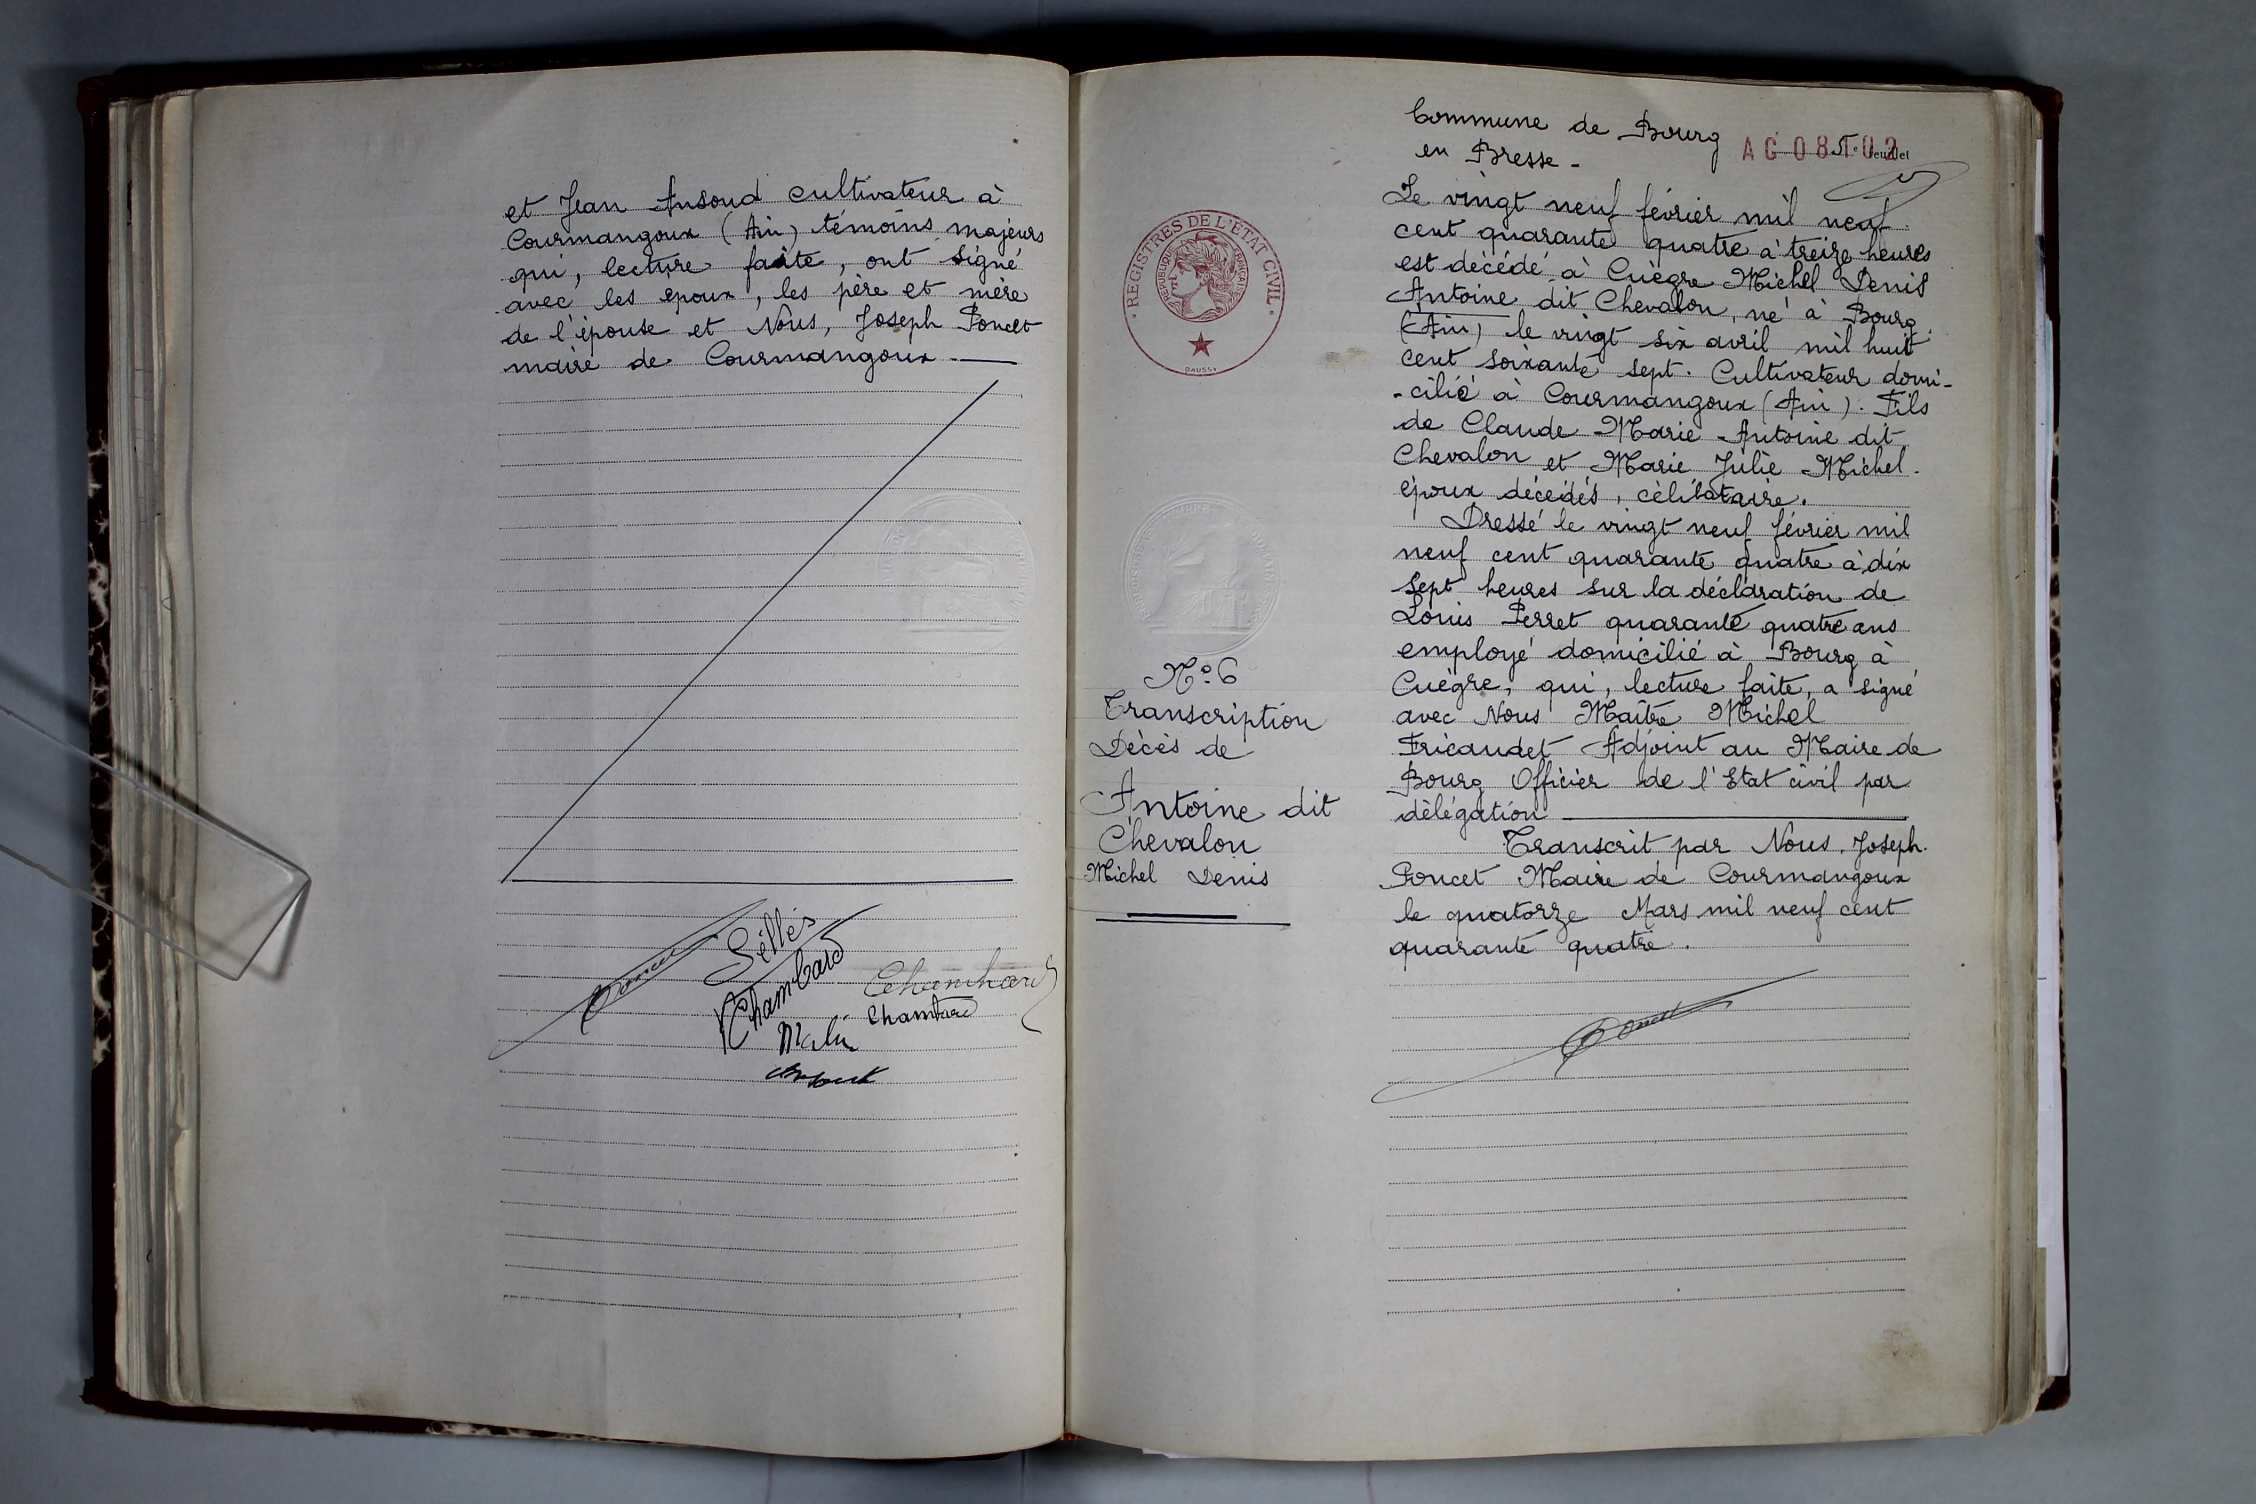 et Jean Ansoud cultivateur à
Courmangoux (Ain) témoins majeurs
qui, lecture faite, ont signé
avec les epoux, les père et mère
de l'épouse et Nous, Joseph Poncet
maire de Courmangoux.
Poncet
Sélles
Chambard
Chambard
Chambard
Commune de Bourg
en Bresse -
AG 08
Feuillet
REGISTRES DE L'ETAT CIVIL
REPUBLIQUE FRANÇAISE
Nº 6
Transcription
Décès de
Antoine dit
Chevalon
Michel Denis
Le vingt neuf février mil neuf
cent quarante quatre à treize heures
est décédé à Cuègre Michel Denis
Antoine dit Chevalon, né à Bourg
(Ain) le vingt six avril mil huit
cent soixante sept. Cultivateur domi-
-cilié à Courmangoux (Ain). Fils
de Claude Marie Antoine dit
Chevalon et Marie Julie Michel.
époux décédés, célibataire.
Dressé le vingt neuf février mil
neuf cent quarante quatre à dix
sept heures sur la déclaration de
Louis Perret quarante quatre ans
employé domicilié à Bourg à
Cuègre, qui, lecture faite, a signé
avec Nous Maître Michel
Fricaudet Adjoint au Maire de
Bourg Officier de l'Etat civil par
délégation
Transcrit par Nous, Joseph
Poncet Maire de Courmangoux
le quatorze Mars mil neuf cent
quarante quatre.
Poncet